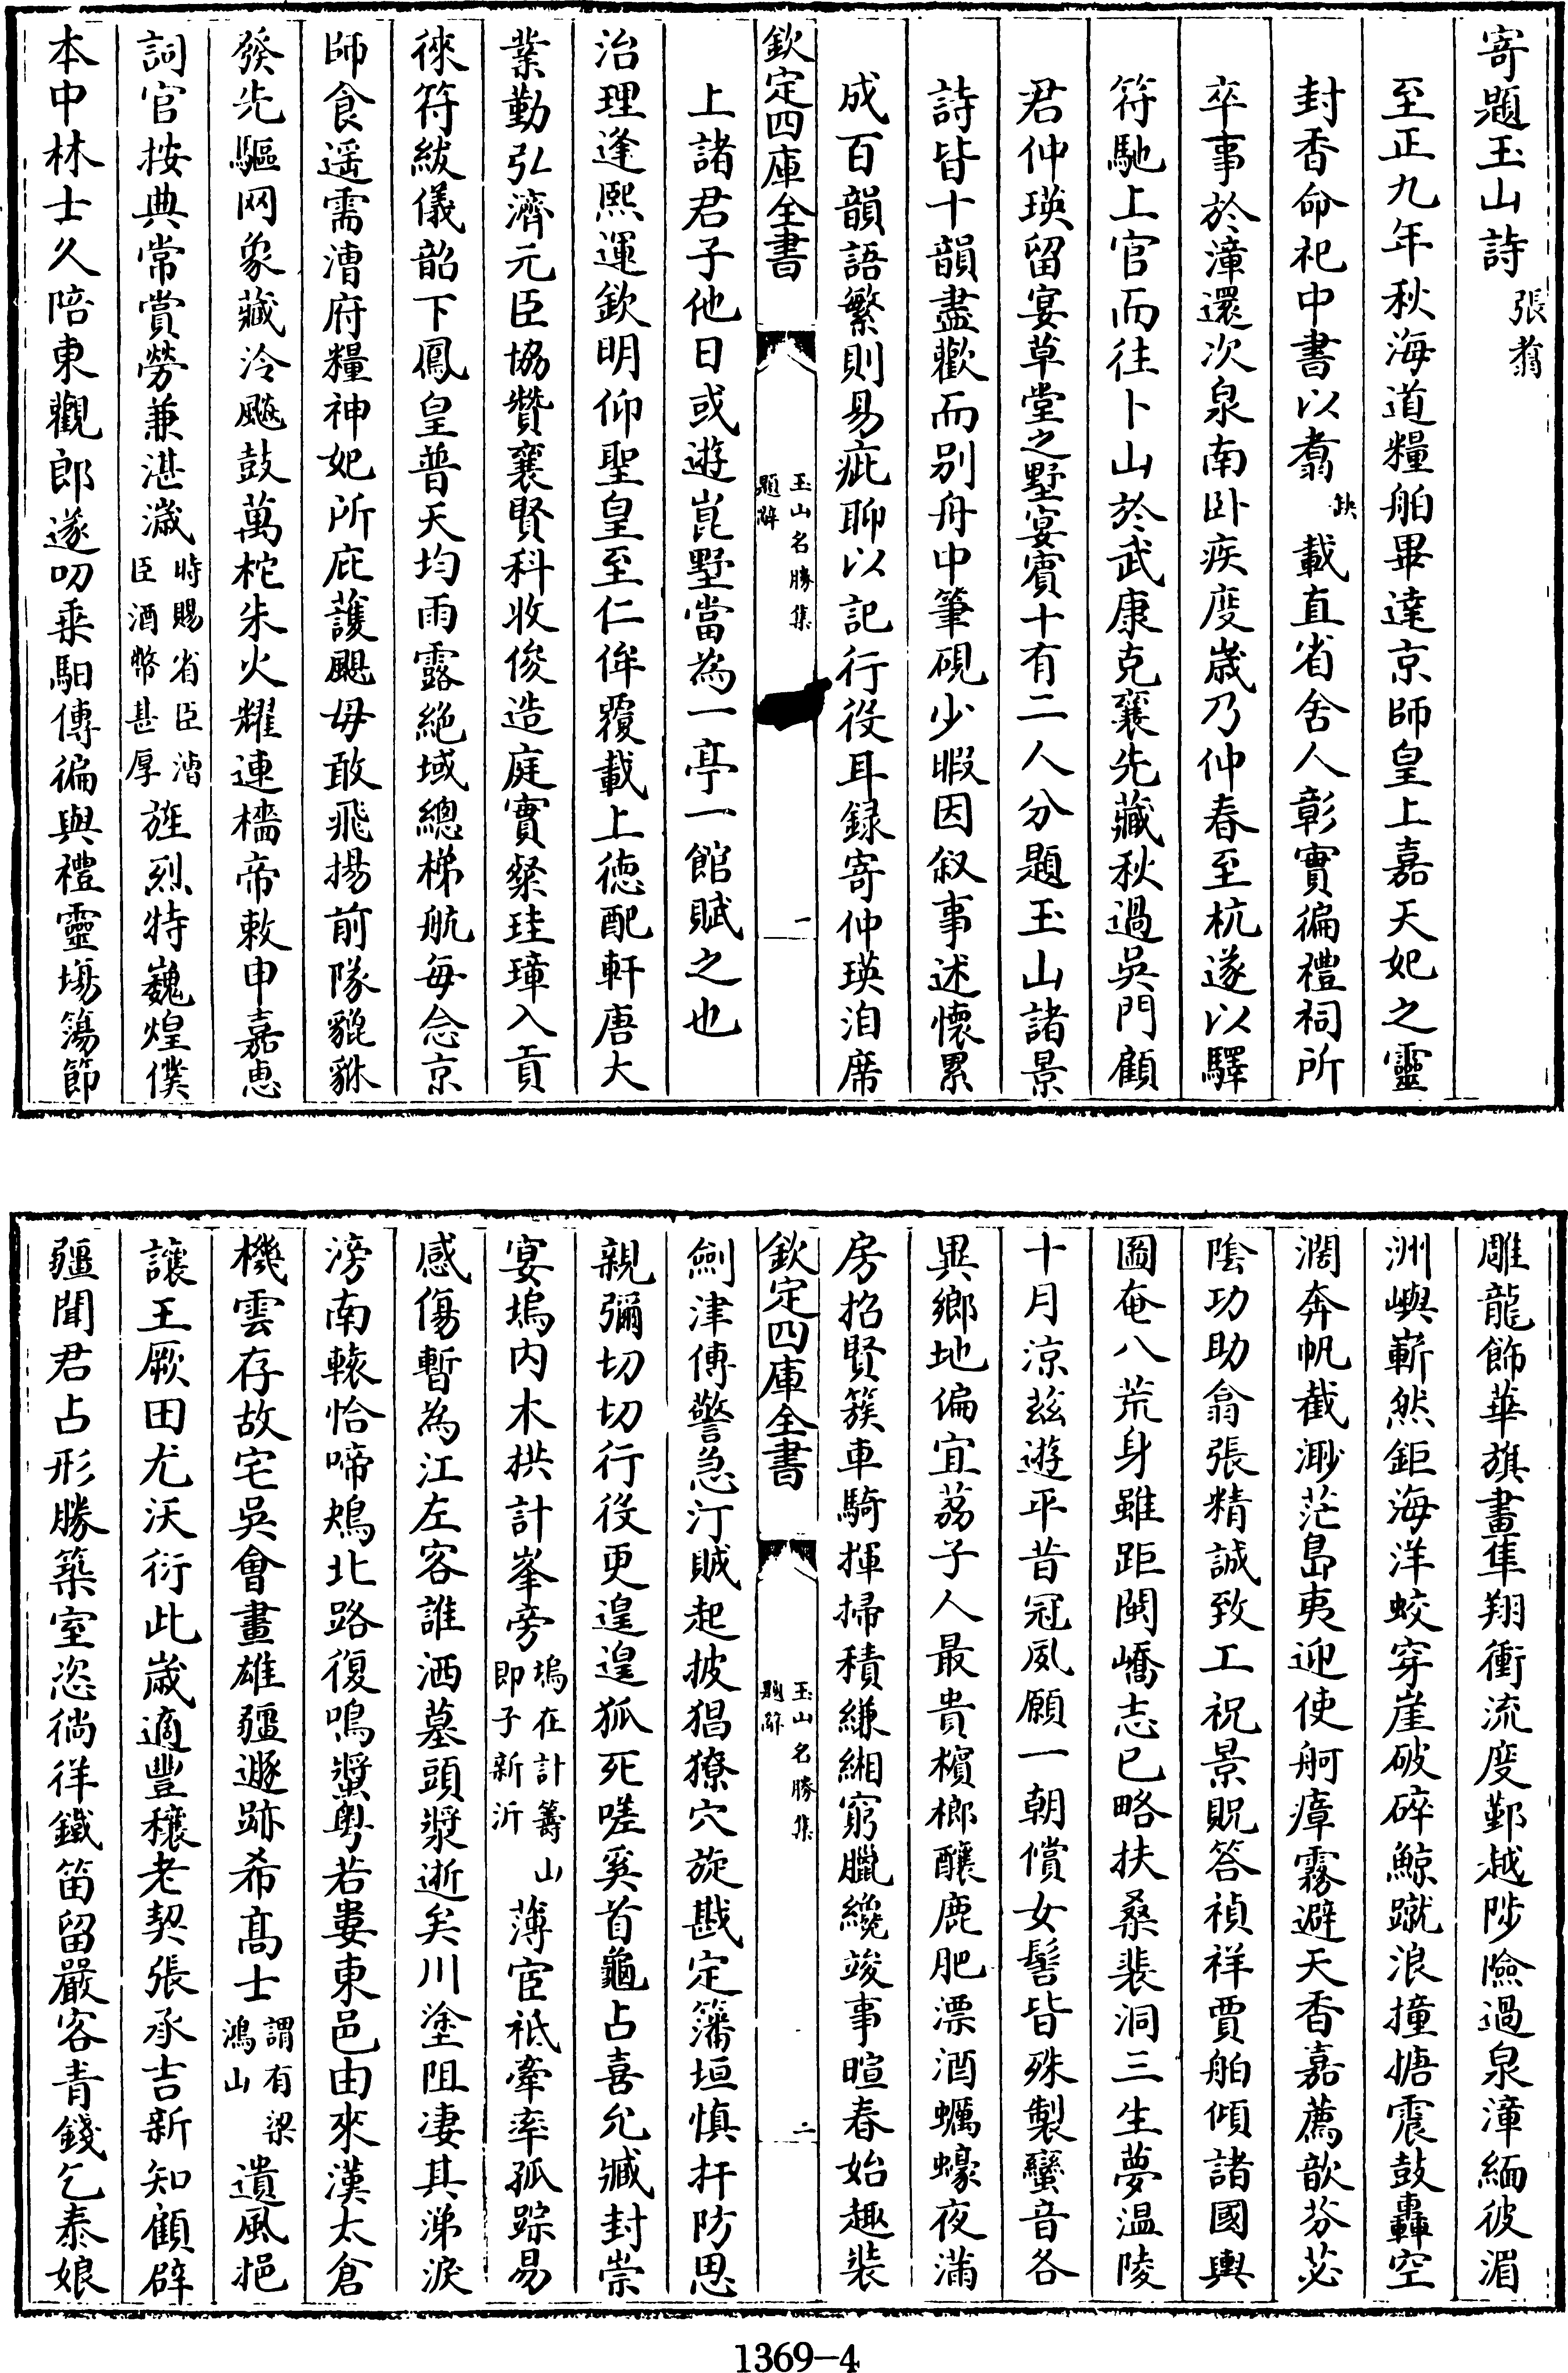 寄題玉山詩 張翥
至正九年秋海道糧舶畢達京師皇上嘉天妃之靈
封香命祀中書以翥缺載直省舍人彰實徧禮祠所
卒事於漳還次泉南卧疾度歲乃仲春至杭遂以驛
符馳上官而往卜山於武康克襄先藏秋過吳門顧
君仲瑛留宴草堂之墅宴賓十有二人分題玉山諸景
詩皆十韻盡歡而别舟中筆硯少暇因叙事述懷累
成百韻語繁則易疵聊以記行役耳録寄仲瑛洎席
欽定四庫全書 玉山名勝集 題辭 一
上諸君子他日或遊崑墅當為一亭一館賦之也
治理逢熙運欽明仰聖皇至仁侔覆載上徳配軒唐大
業勤弘濟元臣協贊襄賢科收俊造庭實粲珪璋入貢
徠符紱儀韶下鳳皇普天均雨露絶域總梯航每念京
師食遥需漕府糧神妃所庇護颶毋敢飛揚前隊貔貅
發先驅网象藏泠飈鼓萬柁朱火耀連檣帝敕申嘉恵
詞官按典常賞勞兼湛濊時賜省臣漕臣酒幣甚厚旌烈特巍煌僕
本中林士久陪東觀郎遂叨乗馹傳徧與禮靈場簜節
雕龍飾華旗畫隼翔衝流度鄞越陟險過泉漳緬彼湄
洲嶼嶄然鉅海洋蛟穿崖破碎鯨蹴浪撞搪震鼓轟空
濶奔帆截渺茫島夷迎使舸瘴霧避天香嘉薦歆芬苾
隂功助翕張精誠致工祝景貺答禎祥賈舶傾諸國輿
圖奄八荒身雖距閩嶠志已略扶桑裴洞三生夢温陵
十月凉兹遊平昔冠夙願一朝償女髻皆殊製蠻音各
異鄉地偏宜荔子人最貴檳榔釀鹿肥漂酒蠣蠔夜滿
房招賢簇車騎揮掃積縑緗窮臘纔竣事暄春始趣裝
欽定四庫全書 玉山名勝集 題辭 二
劍津傳警急汀賊起披猖獠穴旋戡定籓垣慎扞防思
親彌切切行役更遑遑狐死嗟奚首龜占喜允臧封崇
宴塢内木拱計峯旁塢在計籌山即子新沂薄宦祗牽率孤踪易
感傷暫為江左客誰洒墓頭漿逝矣川塗阻凄其涕淚
滂南轅恰啼鴂北路復鳴螀粤若婁東邑由來漢太倉
機雲存故宅吳會畫雄疆遯跡希髙士謂有梁鴻山遺風挹
讓王厥田尤沃衍此歲適豐穰老契張承吉新知顧辟
疆聞君占形勝築室恣徜徉鐵笛留嚴客青錢乞泰娘
1369-4